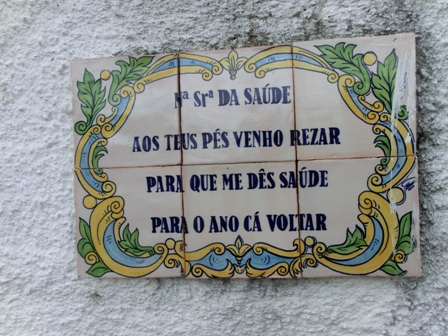 Nª Srª DA SAÚDE
AOS TEUS PÉS VENHO REZAR
PARA QUE ME DÊS SAÚDE
PARA O ANO CÁ VOLTAR